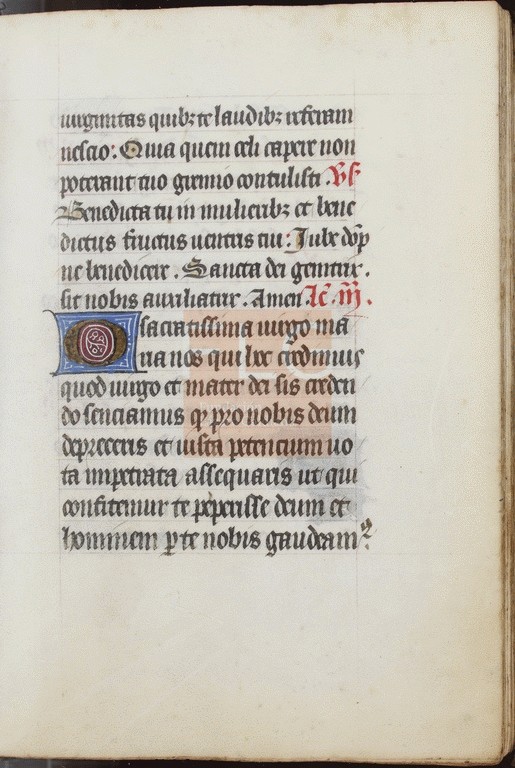 uirginitas quibz te laudibz referam
nescio: Quia quem celi capere non
poterant tuo gremio contulisti. Vs
Benedicta tu in mulieribz et bene
dictus fructus uentris tui: Iube dōp
ne benedicere. Sancta dei genitrix.
sit nobis auxiliatrix. Amen. Lc̄. iij.
O sacratissima uirgo ma
ria nos qui hec credimus
quod uirgo et mater dei sis creden
do senciamus qꝫ pro nobis deum
depreceris et iusta petencium uo
ta impetrata assequaris ut qui
confitemur te peperisse deum et
hominem ꝑ te nobis gaudeam⁹: